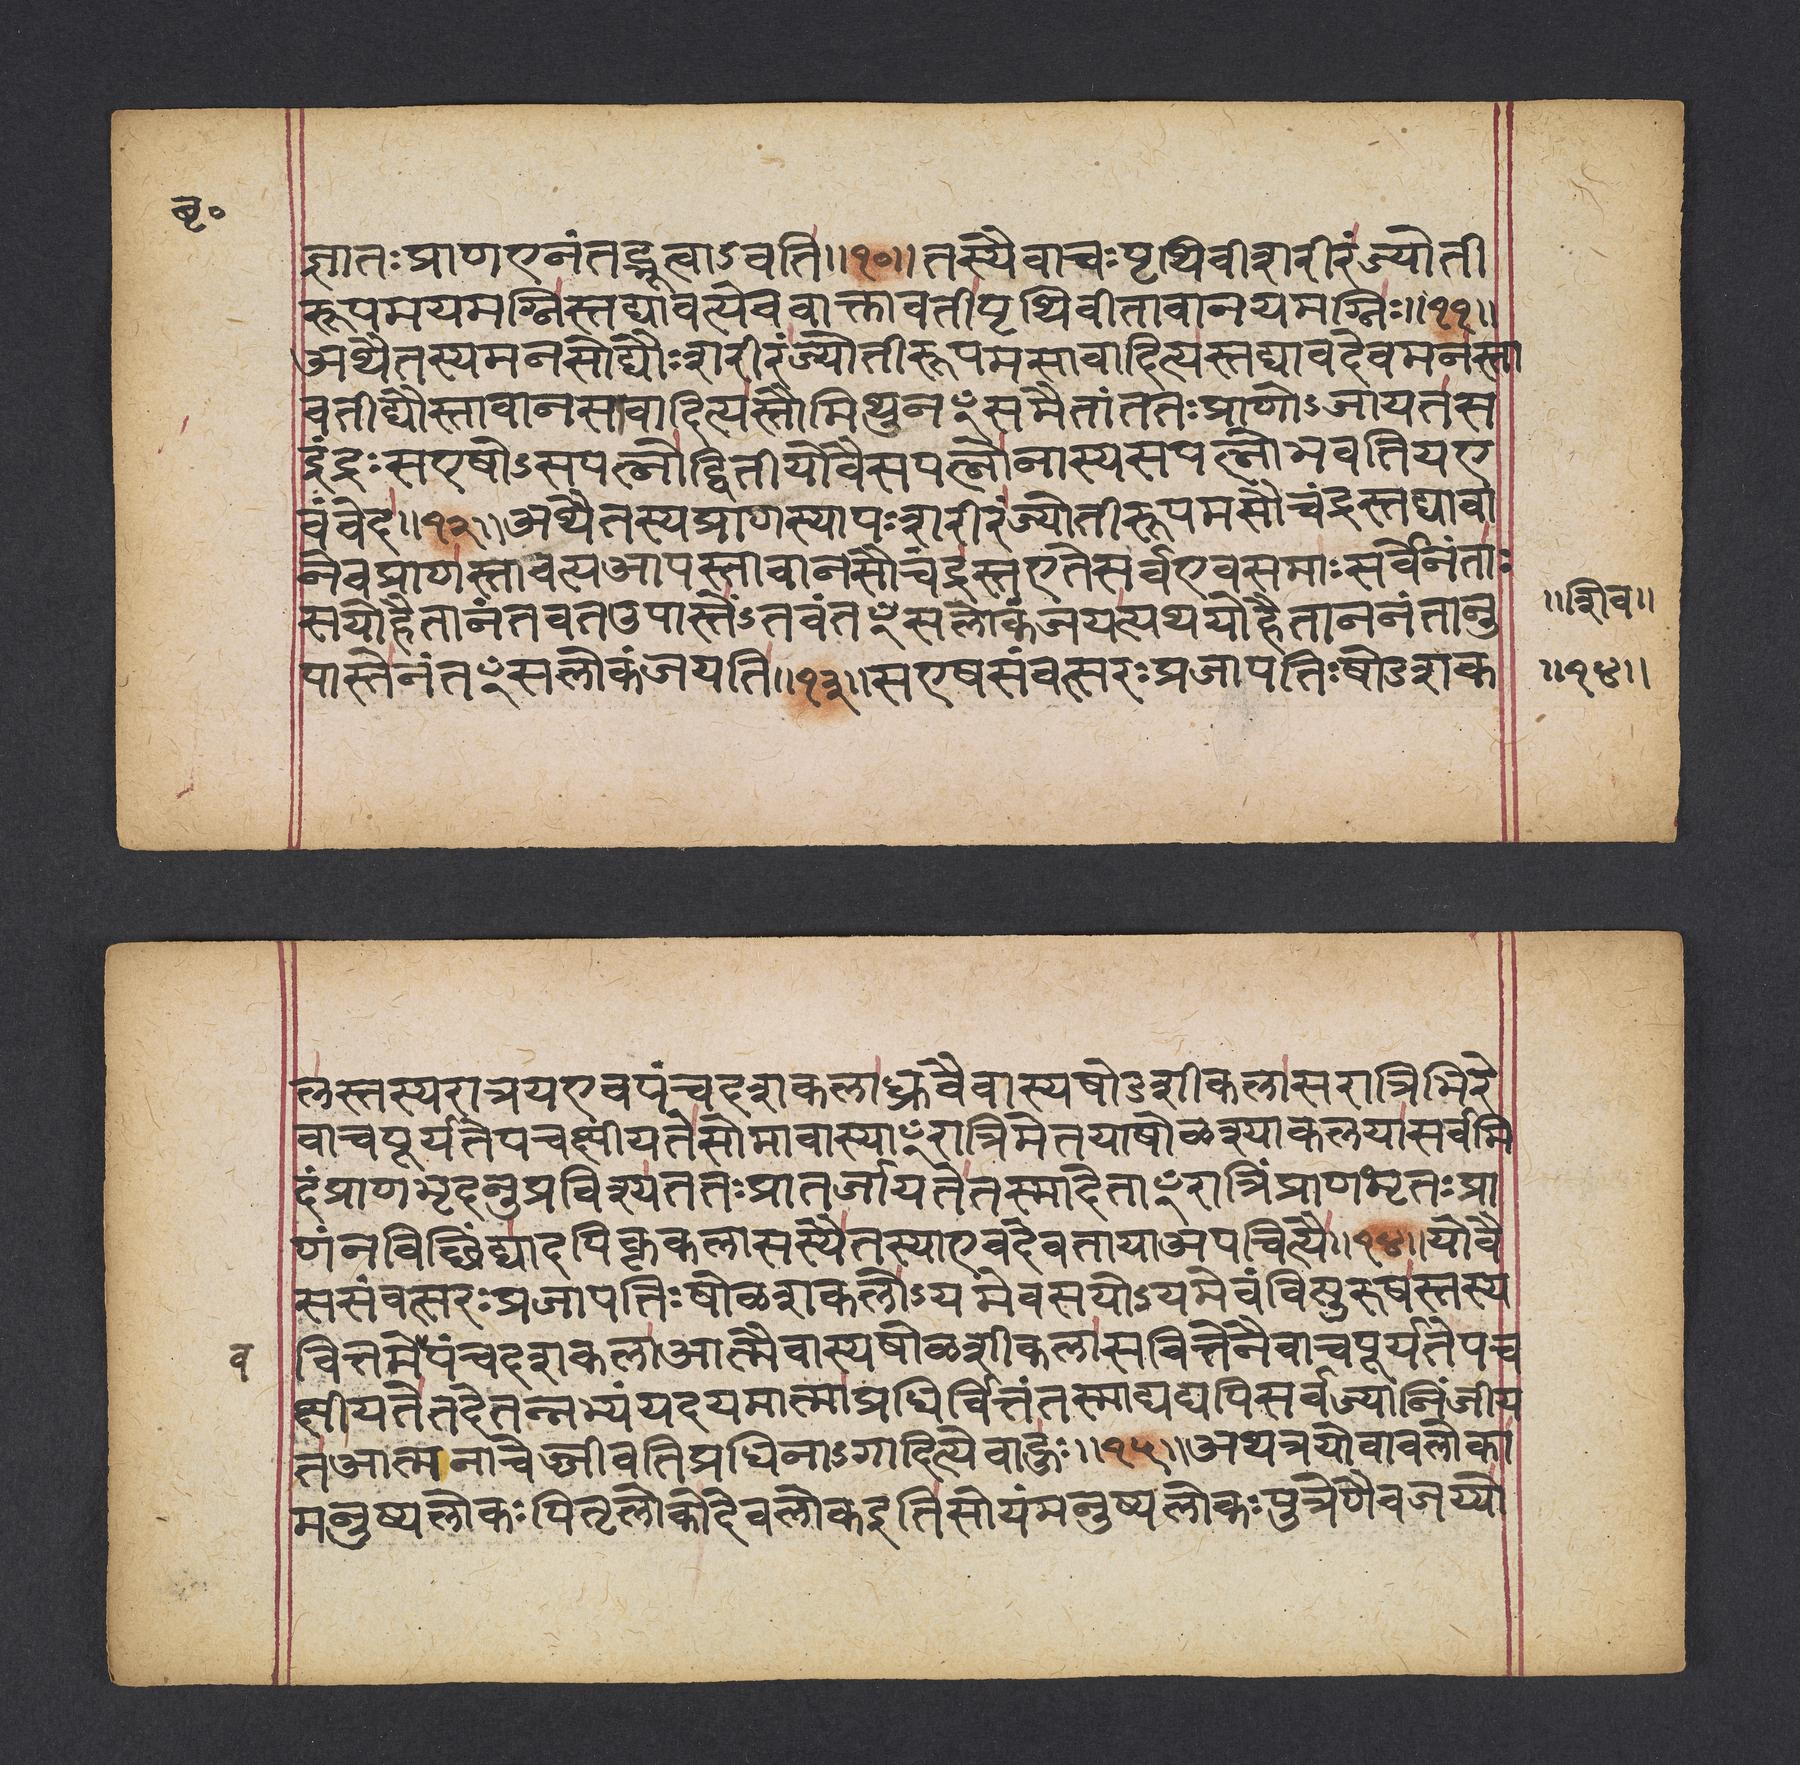 बृ०
ज्ञातःप्राणएनंतद्भूत्वाऽवति॥१०॥तस्यैवाचःपृथिवीशरीरंज्योती
रूपमयमग्निस्तद्यावत्येववाक्तावतीपृथिवीतावानयमग्निः॥११॥
अथैतस्यमनसोद्यौःशरीरंज्योतीरूपमसावादित्यस्तद्यावदेवमनस्ता
वतीद्यौस्तावानसावादित्यस्तौमिथुनꣳसमैतांततःप्राणोऽजायतस
इंद्रःसएषोऽसपत्नोद्वितीयोवैसपत्नोनास्यसपत्नोभवतियए
वंवेद॥१२॥अथैतस्यप्राणस्यापःशरीरंज्योतीरूपमसौचंद्रस्तद्यावा
नेवप्राणस्तावत्यआपस्तावानसौचंद्रस्तएतेसर्वएवसमाःसर्वेनंताः
सयोहैतानंतवतउपास्तेंऽतवंतꣳसलोकंजयत्यथयोहैताननंतानु
पास्तेनंतꣳसलोकंजयति॥१३॥सएषसंवत्सरःप्रजापतिःषोडशक
॥शिव॥
॥१४॥
लस्तस्यरात्रयएवपंचदशकलाध्रुवैवास्यषोडशीकलासरात्रिभिरे
वाचपूर्यतेपचक्षीयतेसोमावास्याꣳरात्रिमेतयाषोळश्याकलयासर्वमि
दंप्राणभृदनुप्रविश्यततःप्रातर्जायतेतस्मादेताꣳरात्रिंप्राणभृतःप्रा
णंनविछिंद्यादपिकृकलासस्यैतस्याएवदेवतायाअपचित्यै॥१४॥योवै
ससंवत्सरःप्रजापतिःषोळशकलोऽयमेवसयोऽयमेवंवित्पुरुषस्तस्य
वित्तमेपंचदशकलाआत्मैवास्यषोळशीकलासवित्तेनैवाचपूर्यतेपच
व
क्षीयतेतदेतन्नभ्यंयदयमात्माप्रधिर्वित्तंतस्माद्यद्यपिसर्वज्यानिंजीय
तआत्मनाचेज्जीवतिप्रधिनाऽगादित्येवाहुः॥१५॥अथत्रयोवावलोका
मनुष्यलोकःपितृलोकोदेवलोकइतिसोयंमनुष्यलोकःपुत्रेणैवजय्यो